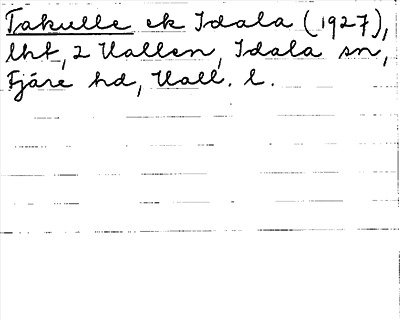 Takulle ek Idala (1927),
lht, 2 Vallen, Idala sn,
Fjäre hd, Hall. l.